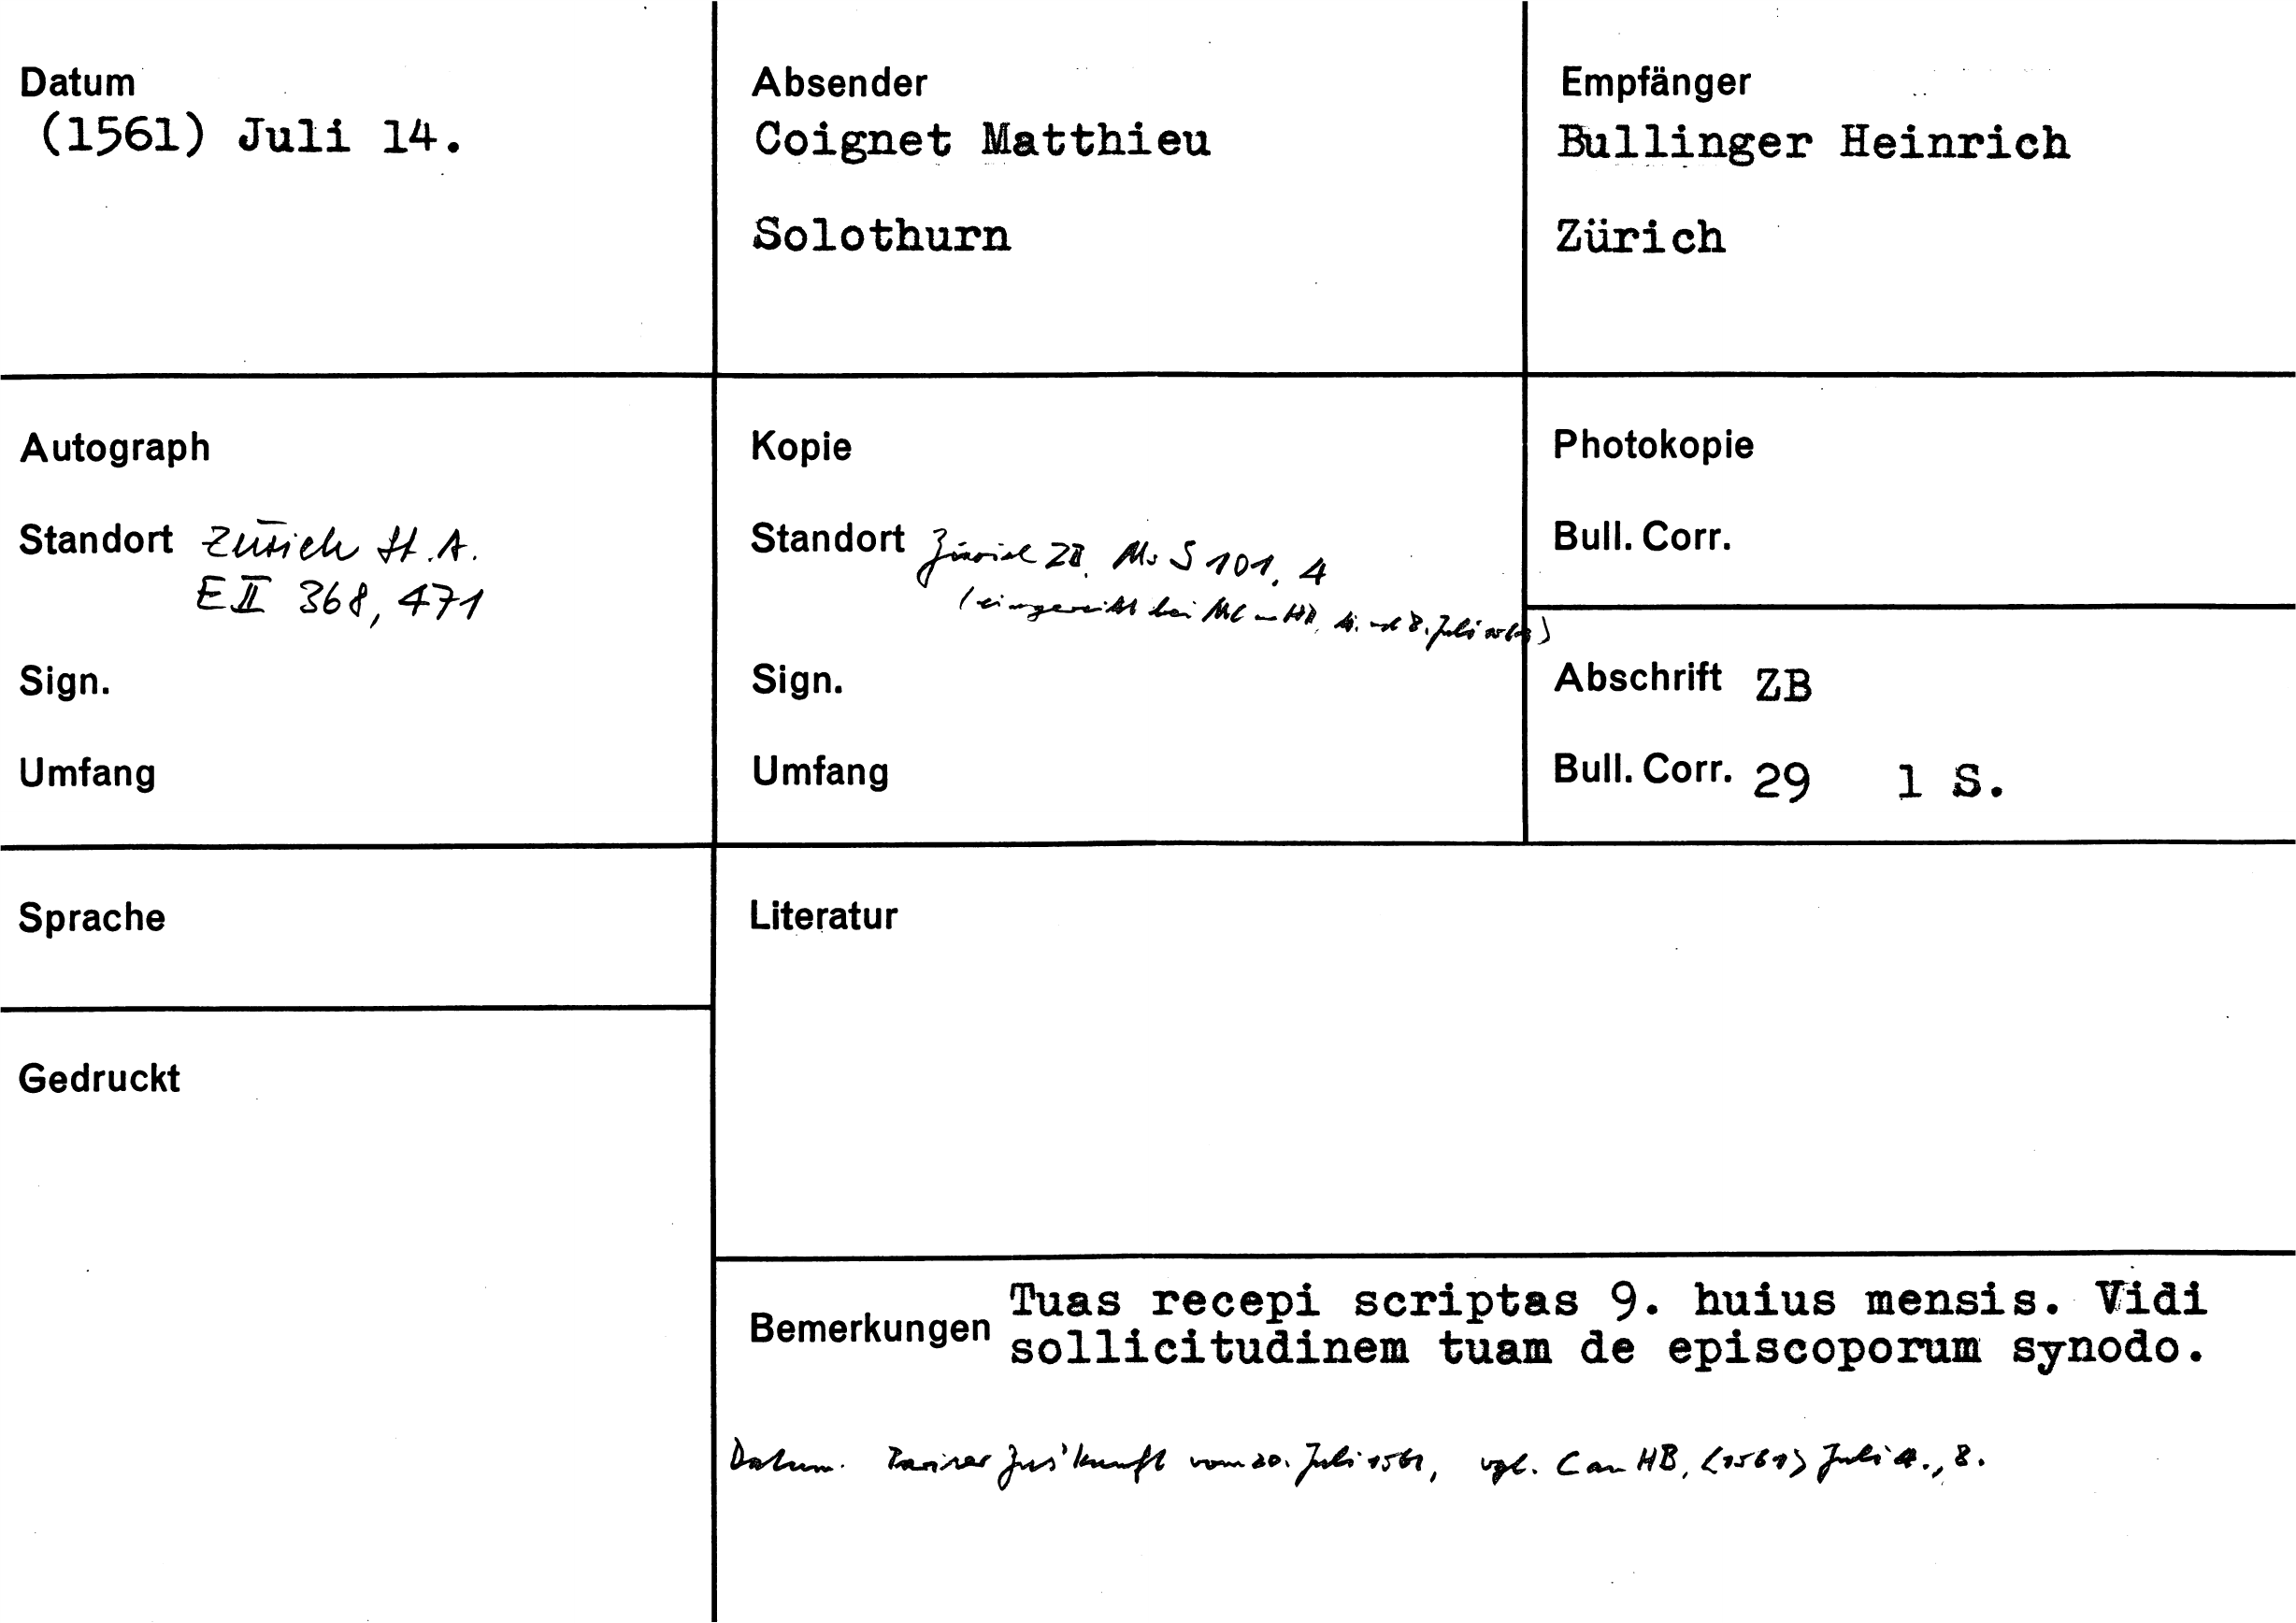 Datum
(1561) Juli 14.
Absender
Coignet Matthieu
Solothurn
Empfänger
Bullinger Heinrich
Zürich
Autograph
Standort Zürich St.A.
E II 368, 471
Sign.
Umfang
Kopie
Standort Zürich ZB, Ms S 101, 4
(eingereiht bei MC an HB, 4. und 8. Juli
Sign.
Umfang
Photokopie
Bull. Corr.
Abschrift ZB
Bull. Corr. 29 1 S.
Sprache
Literatur
Gedruckt
Bemerkungen Tuas recepi scriptas 9. huius mensis. Vidi
sollicitudinem tuam de episcoporum synodo.
Datum. vom 20. Juli 1561, vgl. C an HB, <1561> Juli 4., 8.